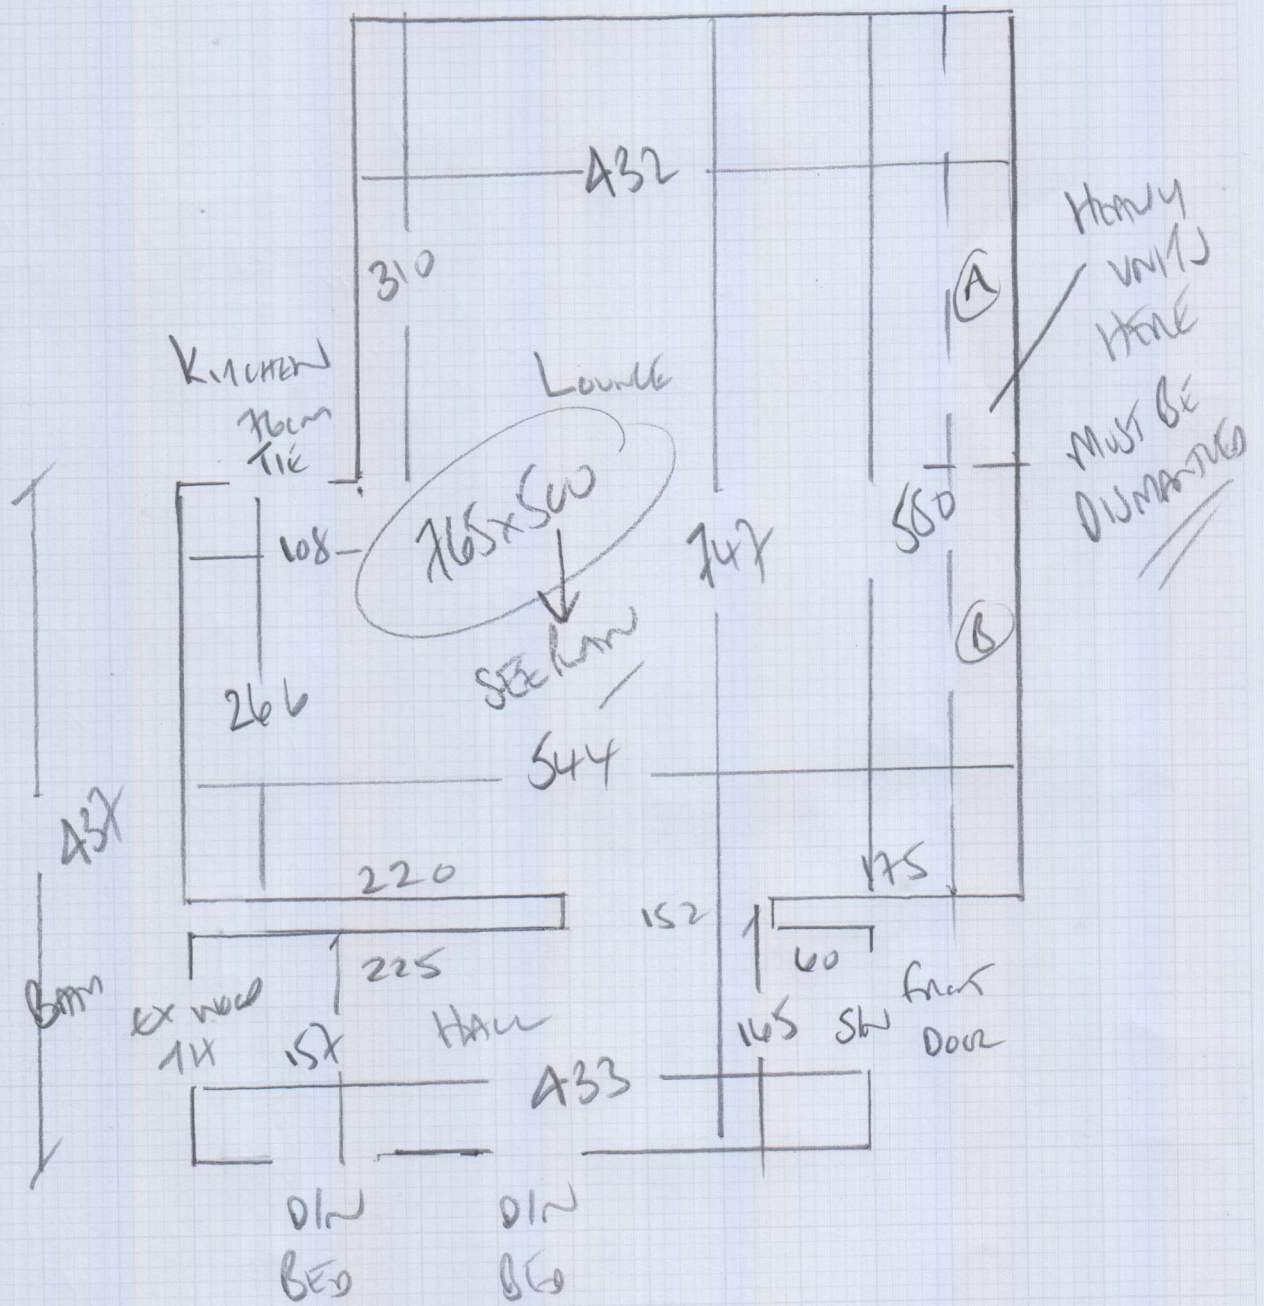 432
310
HEAVY
UNITS
HERE
MUST BE
DISMANTLED
A
KITCHEN
76cm
TIE
LOUNGE
765x500
SEE PLAN
108
747
550
B
266
544
437
220
175
152
225
60
FRONT
DOOR
157
HALL
165
SW
433
DIN
BED
DIN
BED